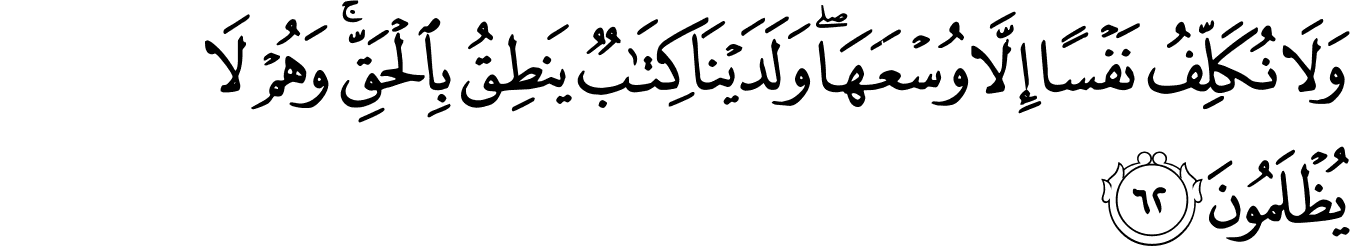 وَلَا نُكَلِّفُ نَفْسًا إِلَّا وُسْعَهَا ۖ وَلَدَيْنَا كِتَٰبٌ يَنطِقُ بِٱلْحَقِّ ۚ وَهُمْ لَا
يُظْلَمُونَ ٦٢